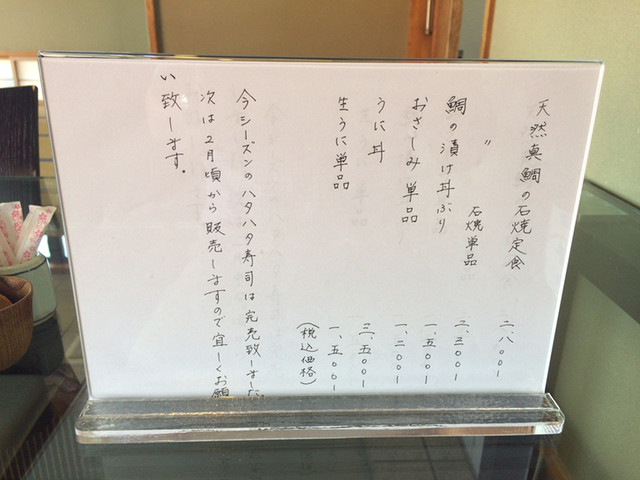 天然真鯛の石焼定食 二、八〇〇ー
〃 石焼単品 二、二〇〇ー
鯛の漬け丼ぶり 一、五〇〇ー
おさしみ単品 一、二〇〇ー
うに丼 三、五〇〇ー
生うに単品 一、五〇〇ー
(税込価格)
今シーズンのハタハタ寿司は完売致しました。
次は2月頃から販売しますので宜しくお願
い致します。